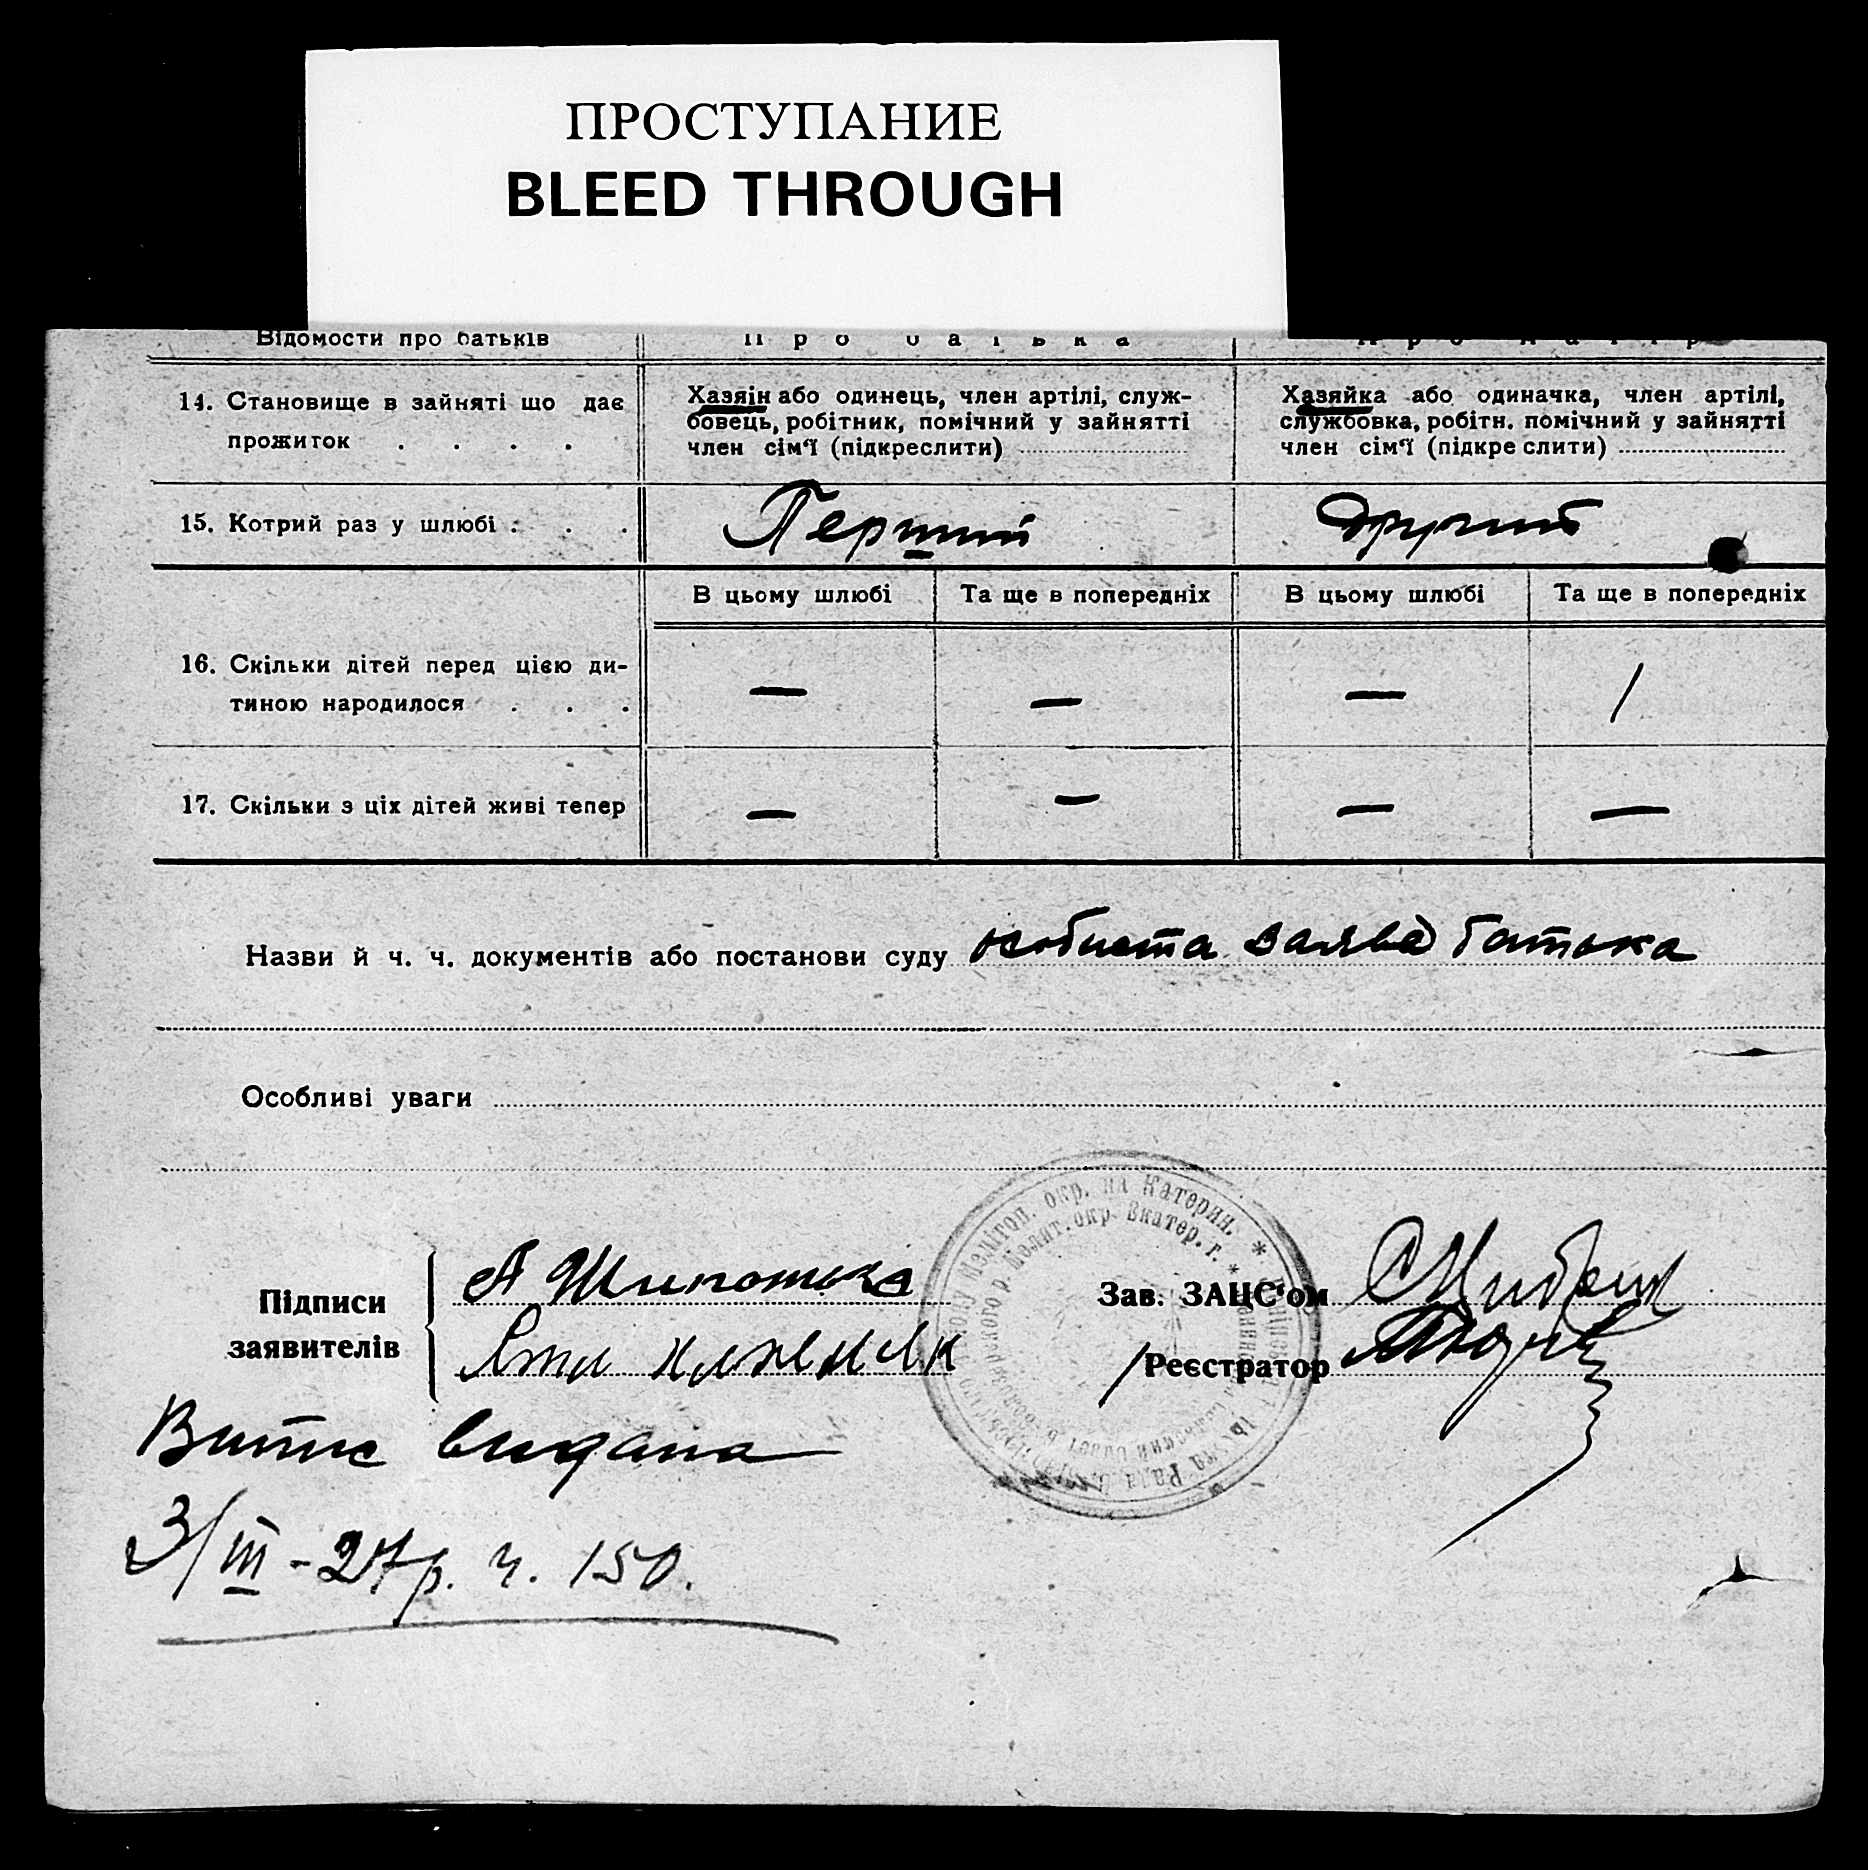 ПРОСТУПАНИЕ
BLEED THROUGH
Відомости про батьків
Про батька
14. Становище в зайняті що дає
прожиток . . . .
Хазяїн або одинець, член артілі, служ-
бовець, робітник, помічний у зайнятті
член сім‘ї (підкреслити)
Хазяйка або одиначка, член артілі,
службовка, робітн. помічний у зайнятті
член сім‘ї (підкре слити)
15. Котрий раз у шлюбі . . .
Перший
другий
В цьому шлюбі
Та ще в попередніх
В цьому шлюбі
Та ще в попередніх
16. Скільки дітей перед цією ди-
тиною народилося . . .
— — — 1
17. Скільки з ціх дітей живі тепер
— — — —
Назви й ч. ч. документів або постанови суду особиста заява батька
Особливі уваги
окр. на Катерин. *
Мелит. окр. Екатер. г. *
Підписи
заявителів
А
Зав. ЗАЦС‘ом
/Реєстратор
Витис видана
3/III - 27 р. ч. 150.